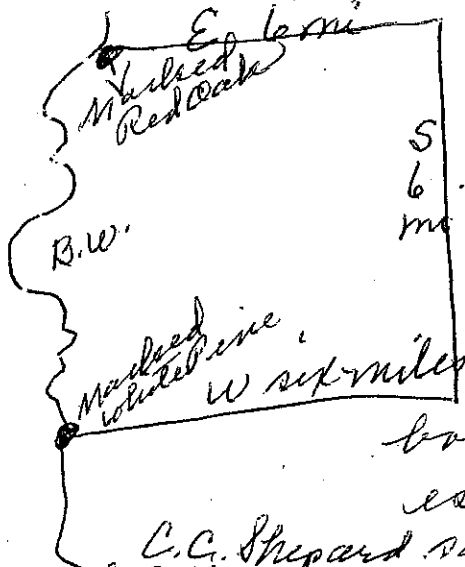 E 6 mi
Marked
Red Oak
S
6
mi
B.W.
Marked
White Pine
W six miles
C.C. Shepard